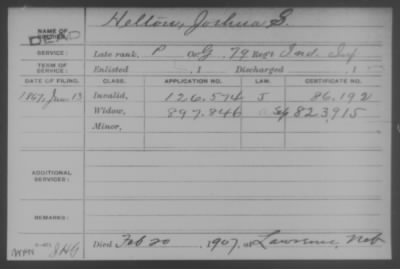 Helton, Joshua S.
NAME OF SOLDIER:
DEAD
SERVICE:
Late rank, P Co G, 79 Reg't Ind. Inf
TERM OF SERVICE:
Enlisted , 1 Discharged , 1
DATE OF FILING. CLASS. APPLICATION NO. LAW. CERTIFICATE NO.
1867, Jun. 13 Invalid, 126.574 86.192
Widow, 897.846 823,915
Minor,
ADDITIONAL SERVICES:
REMARKS:
Died Feb 20 1907, at Lawrence, Neb